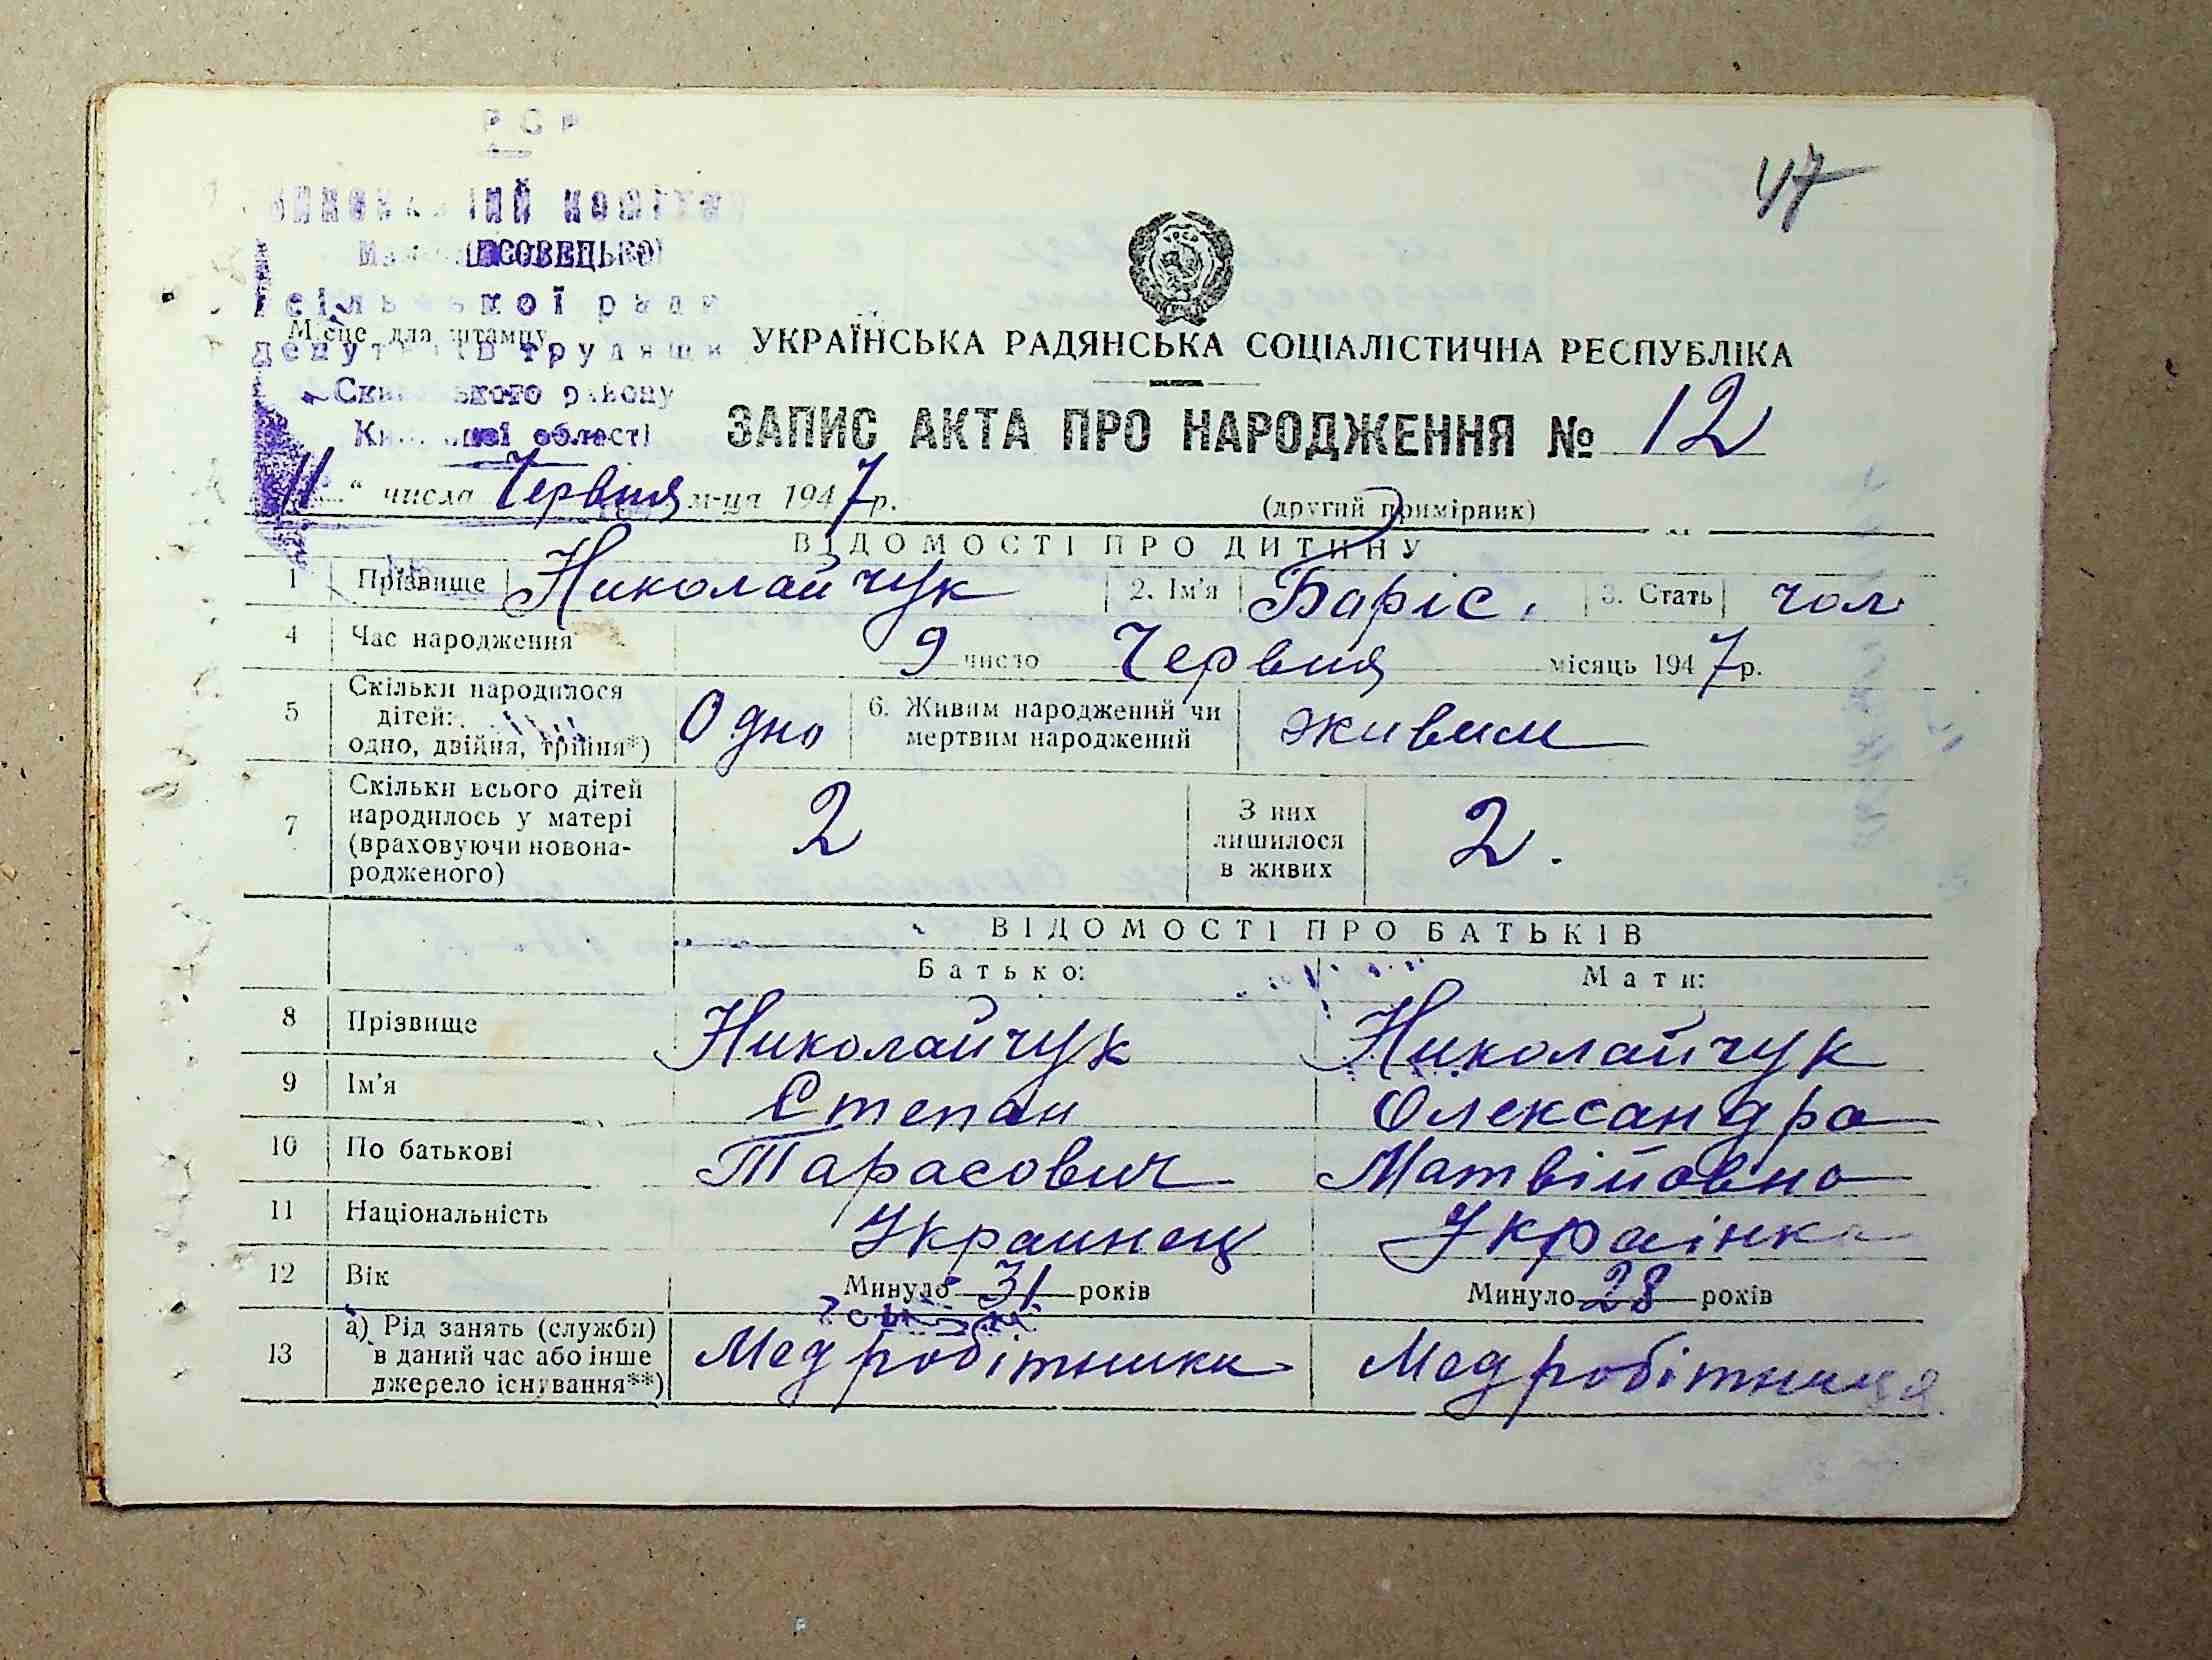 РСР
47
сільської ради
Місце для штампу
УКРАЇНСЬКА РАДЯНСЬКА СОЦІАЛІСТИЧНА РЕСПУБЛІКА
району
області
ЗАПИС АКТА ПРО НАРОДЖЕННЯ № 12
11 " числа Червня м-ця 1947 р.
(другий примірник)
ВІДОМОСТІ ПРО ДИТИНУ
1 Прізвище Николайчук 2. Ім'я Баріс. 3. Стать чол
4 Час народження 9 число Червня місяць 1947 р.
5 Скільки народилося дітей: одно, двійня, трійня*) Одно 6. Живим народжений чи мертвим народжений живим
7 Скільки всього дітей народилось у матері (враховуючи новонародженого) 2 З них лишилося в живих 2.
ВІДОМОСТІ ПРО БАТЬКІВ
Батько: Мати:
8 Прізвище Николайчук Николайчук
9 Ім'я Степан Олександра
10 По батькові Тарасович Матвійовно
11 Національність Украинец Украінка
12 Вік Минуло 31 років Минуло 28 років
13 а) Рід занять (служби) в даний час або інше джерело існування**) Мед робітники Мед робітниця